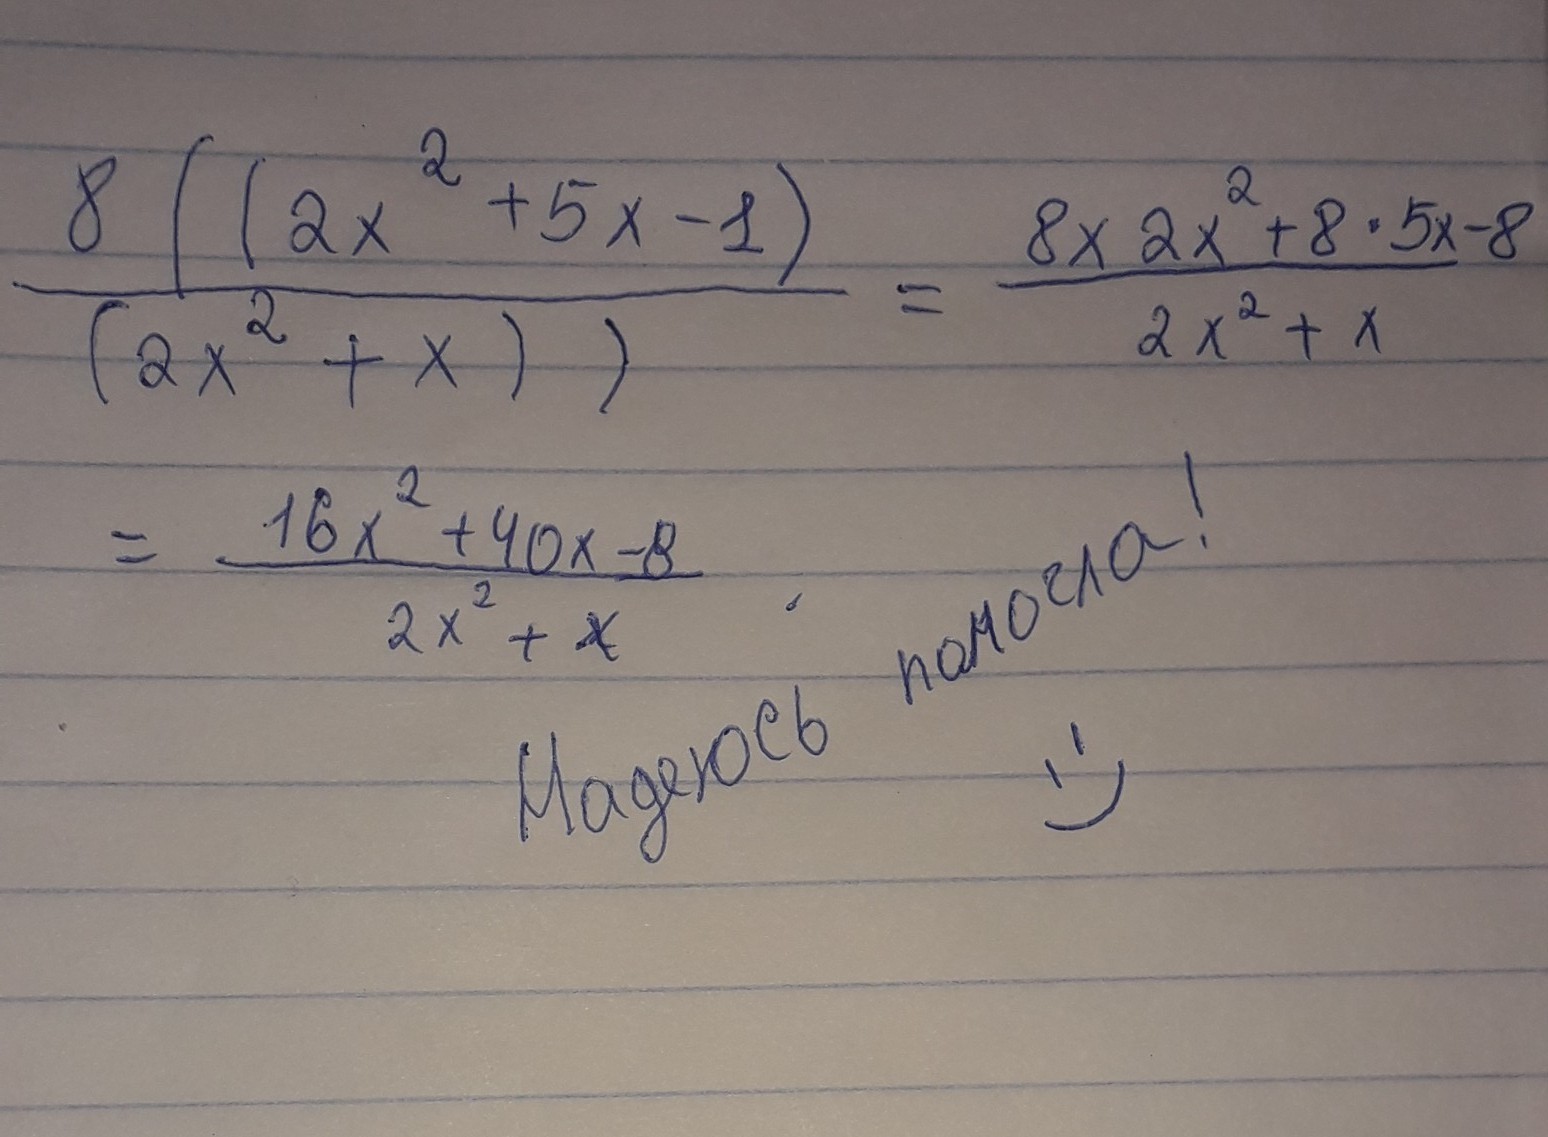 8((2x² + 5x - 1) / (2x² + x)) = 8x 2x² + 8 · 5x - 8 / 2x² + x
= 16x² + 40x - 8 / 2x² + x
Надеюсь помогла!